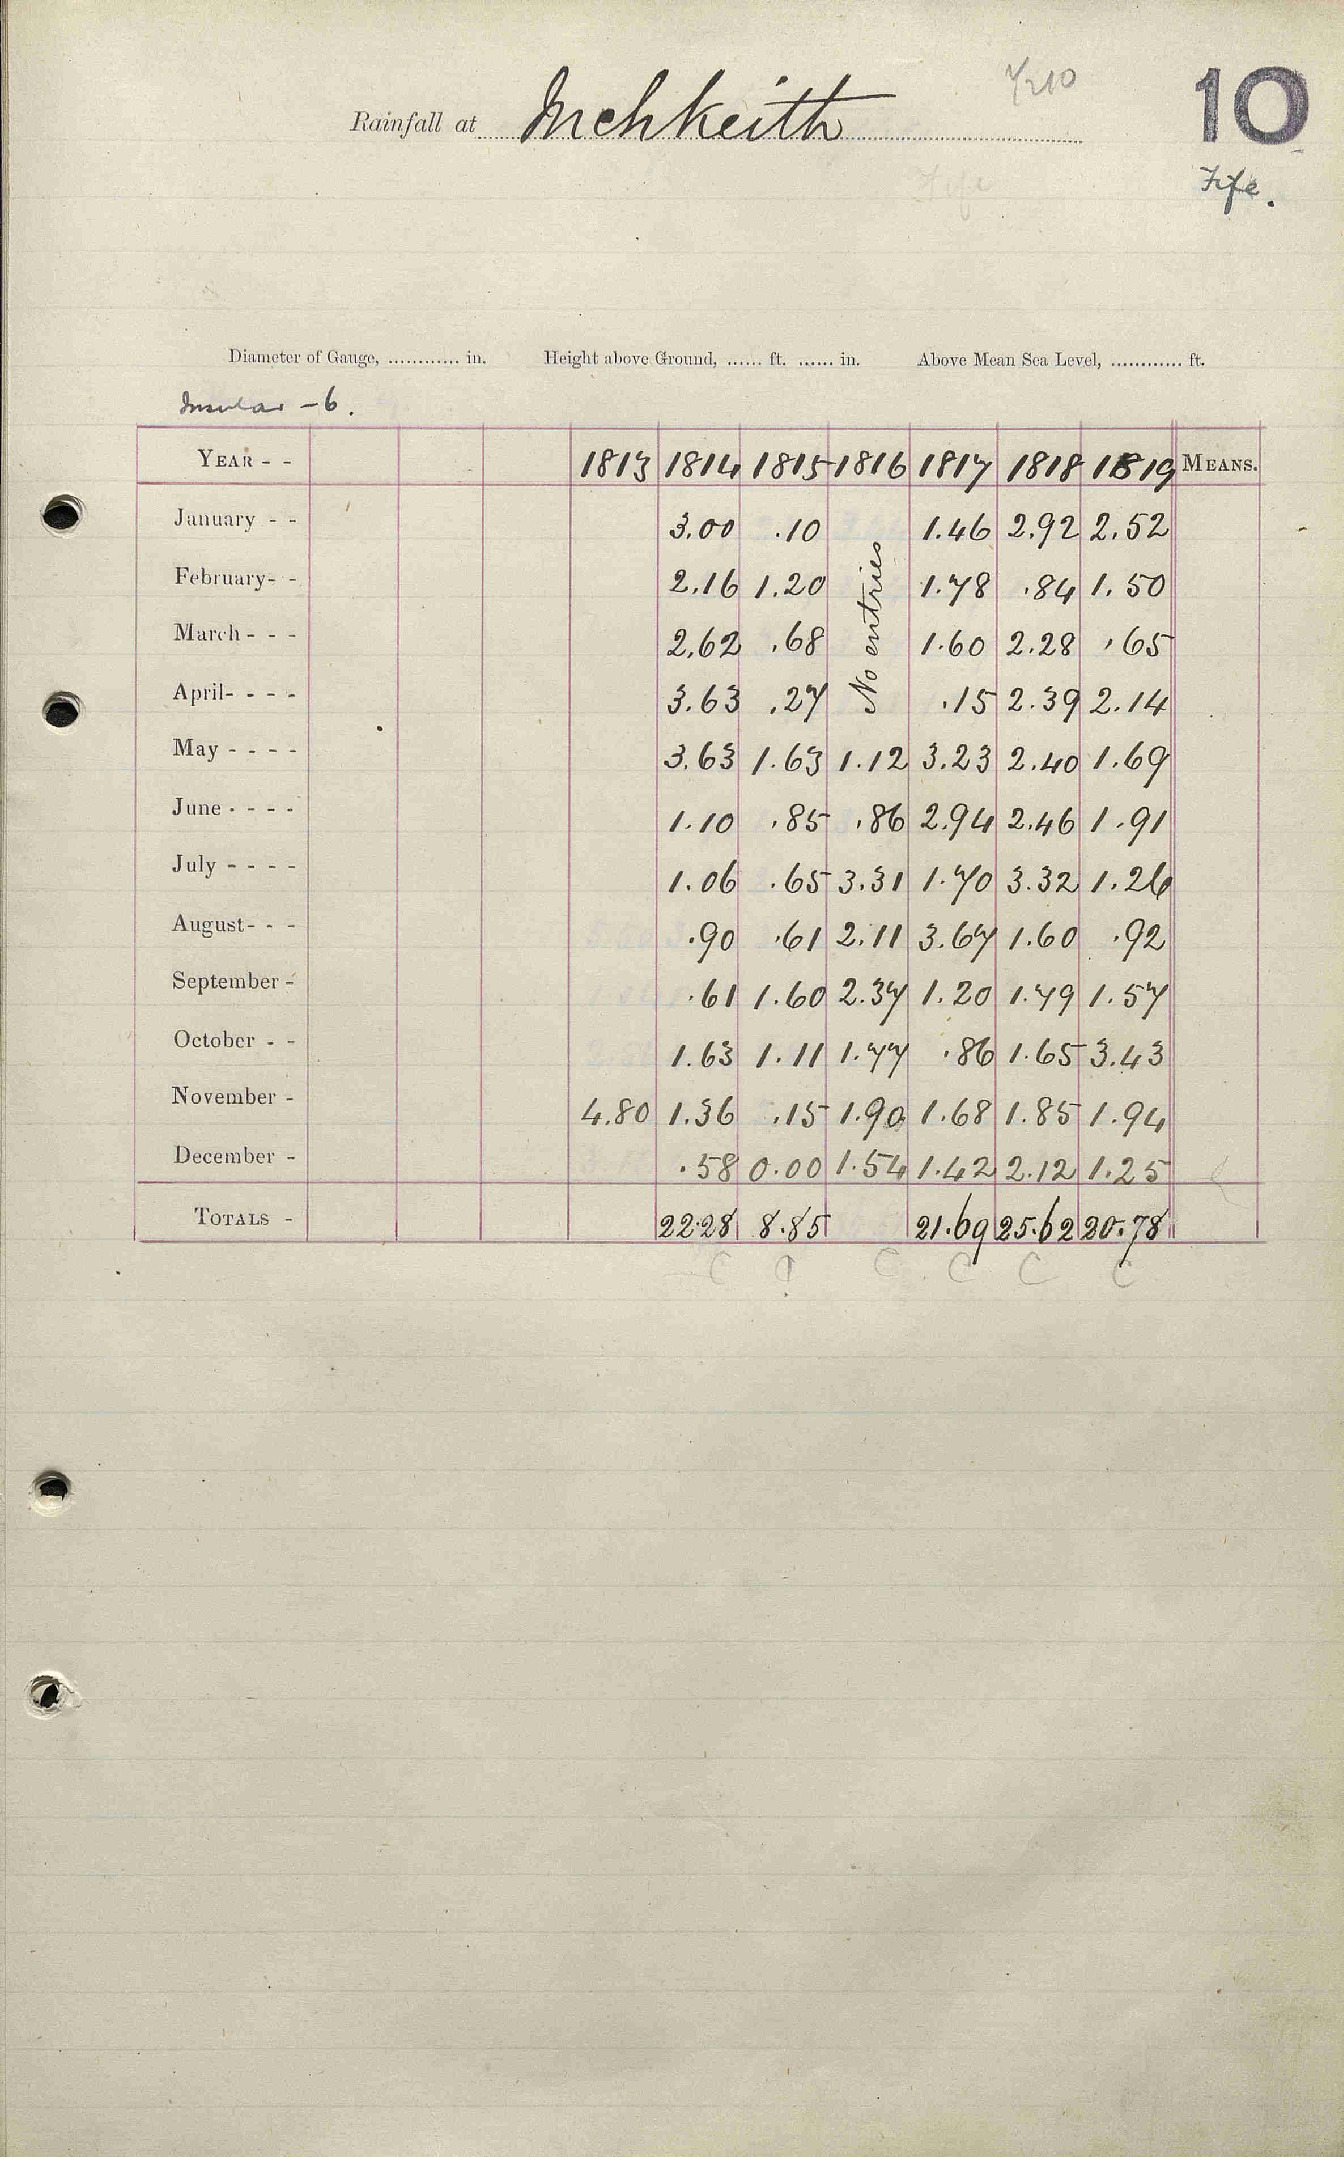 7/210
10
Rainfall at Inchkeith
Fife.
Fife
Diameter of Gauge, ............ in. Height above Ground, ...... ft. ...... in. Above Mean Sea Level, ............ ft.
Insular - 6.
YEAR - - 1813 1814 1815 1816 1817 1818 1819 MEANS.
January - - 3.00 .10 1.46 2.92 2.52
February- - 2.16 1.20 1.78 .84 1.50
March - - - 2.62 .68 1.60 2.28 .65
April- - - - 3.63 .27 .15 2.39 2.14
No entries
May - - - - 3.63 1.63 1.12 3.23 2.40 1.69
June - - - - 1.10 .85 .86 2.94 2.46 1.91
July - - - - 1.06 .65 3.31 1.70 3.32 1.26
August- - - .90 .61 2.11 3.67 1.60 .92
September - .61 1.60 2.37 1.20 1.79 1.57
October - - 1.63 1.11 1.77 .86 1.65 3.43
November - 4.80 1.36 .15 1.90 1.68 1.85 1.94
December - .58 0.00 1.54 1.42 2.12 1.25
TOTALS - 22.28 8.85 21.69 25.62 20.78
C C C C C C